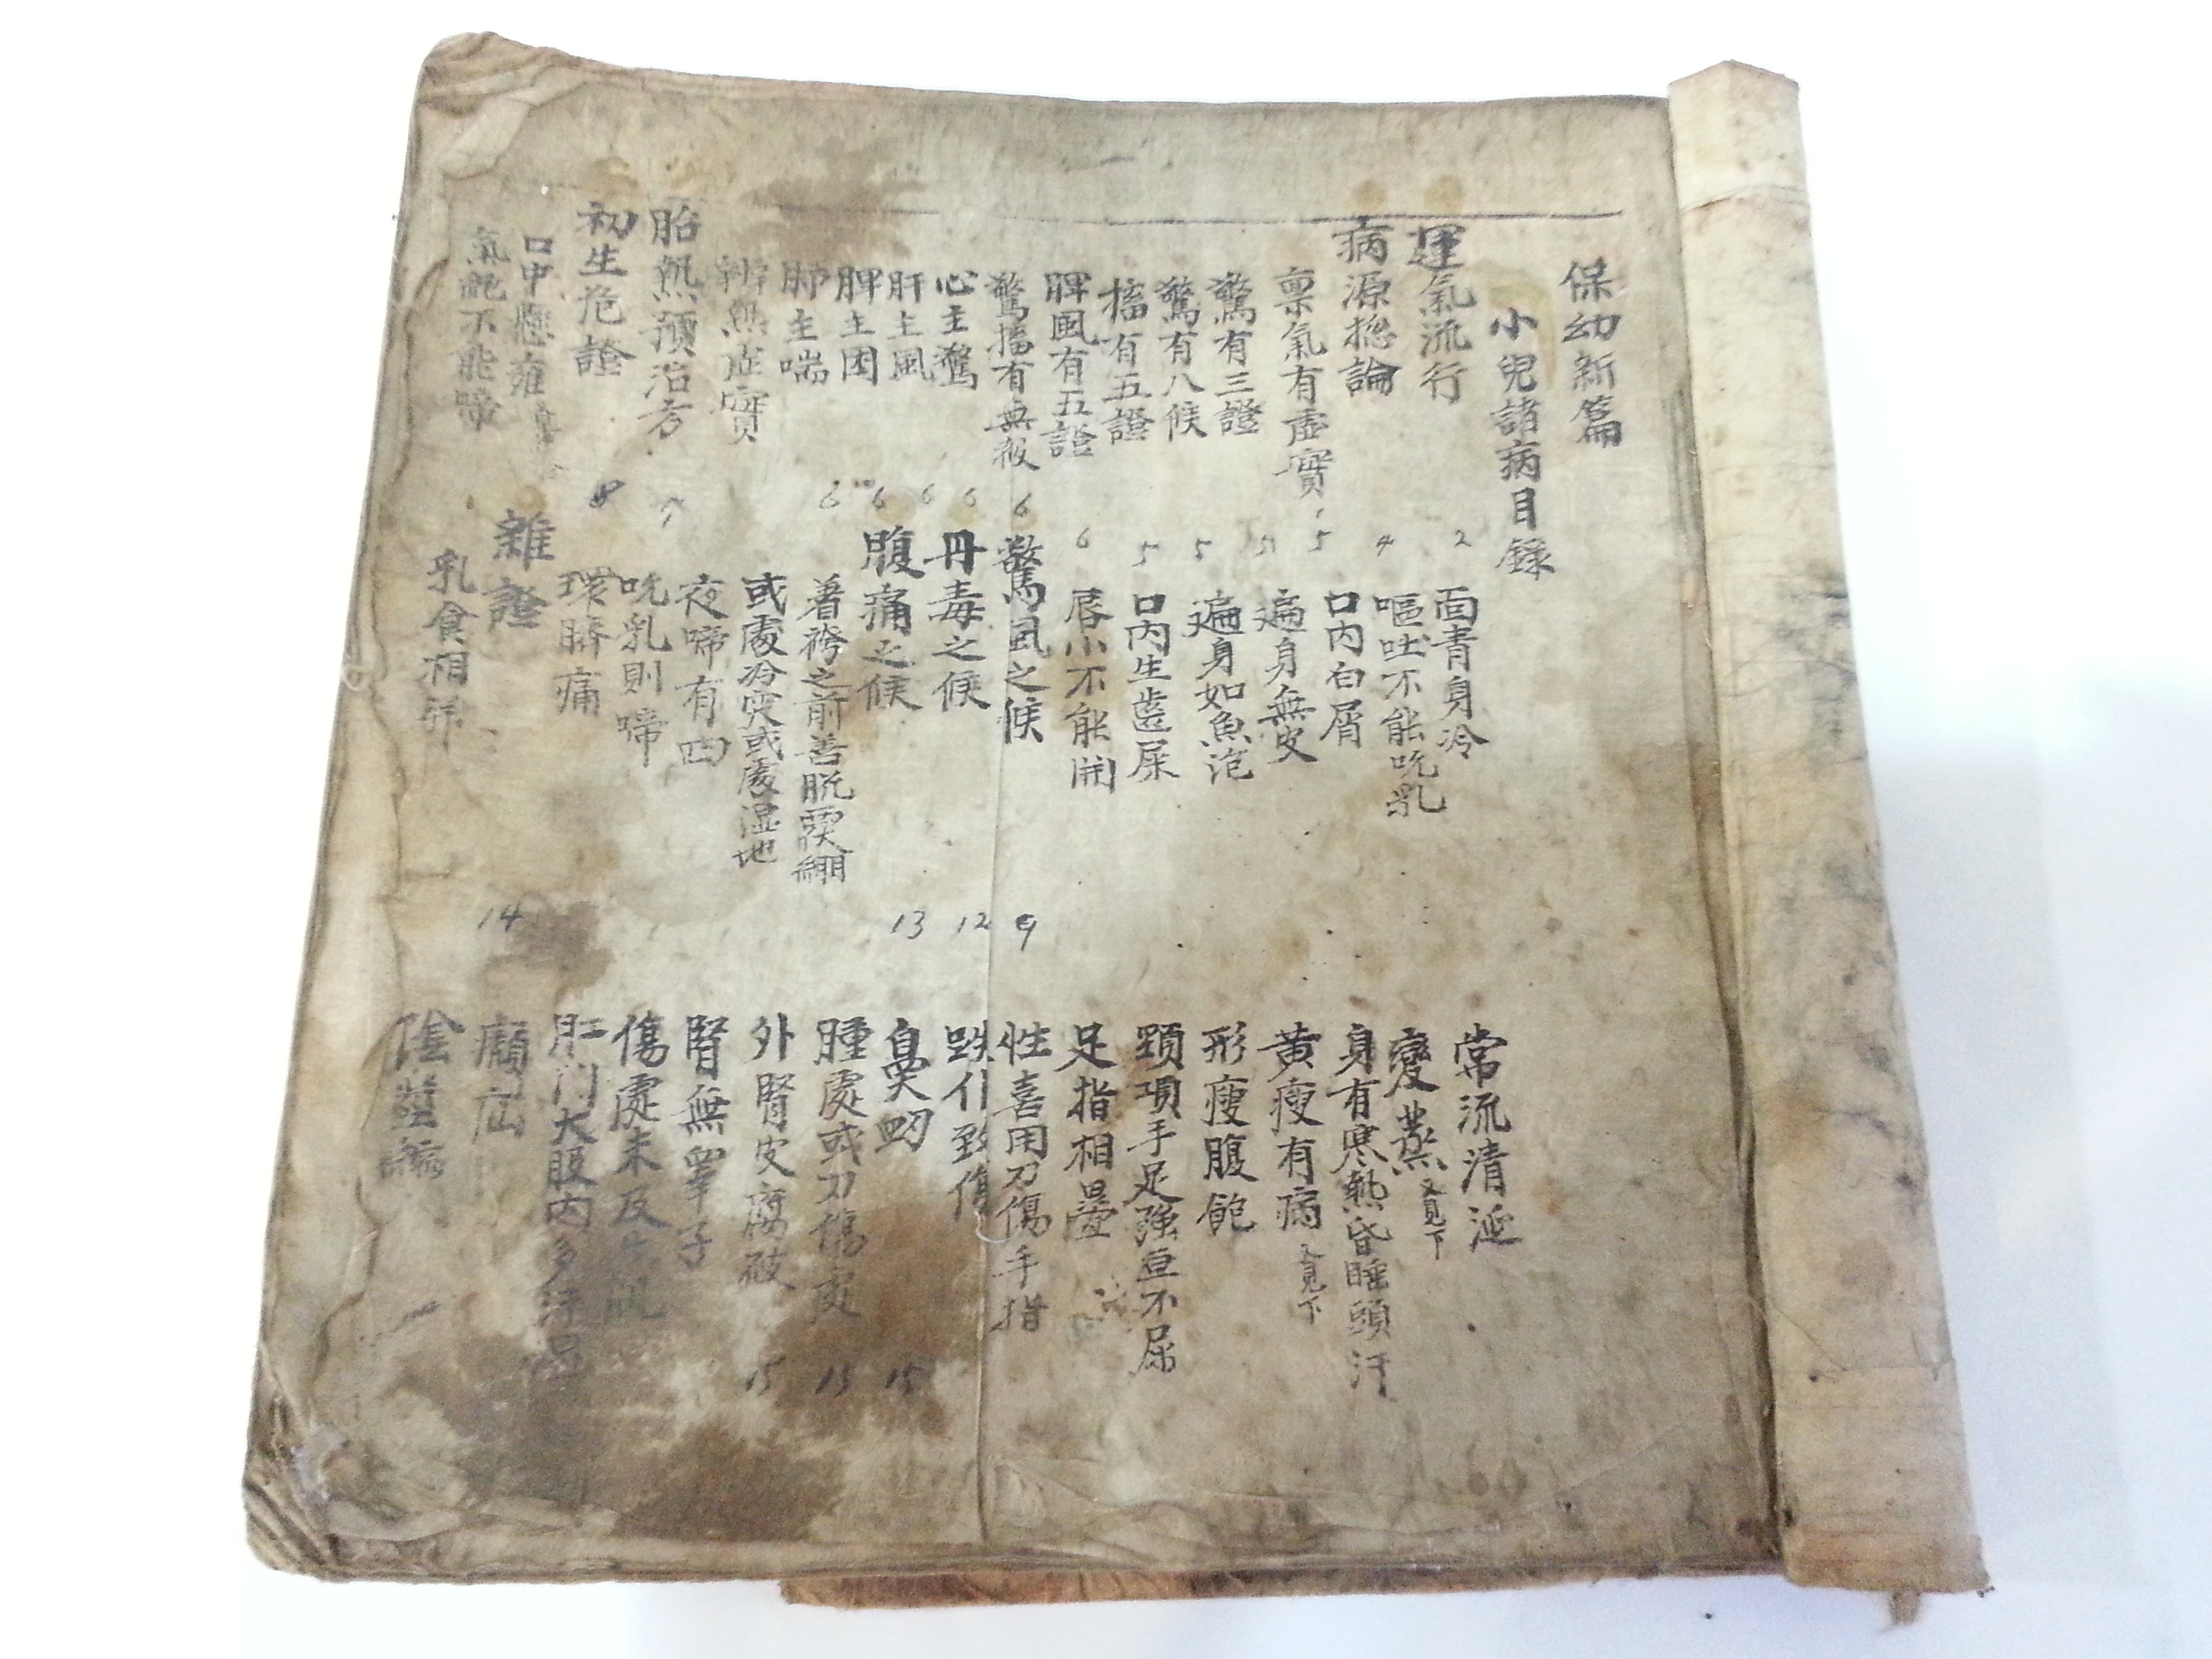 保幼新篇
小兒諸病目錄
運氣流行 2
病源揔論 4
稟氣有虛實 5
驚有三證 5
驚有八候 5
搐有五證 5
風有五證 6
驚搐有無 6
心主驚 6
肝主風 6
脾主困 6
肺主喘 6
辨熱虛實
胎熱預治方 7
初生危證 8
口中懸癰
不能啼
面青身冷
嘔吐不能吮乳
口內白屑
遍身無皮
遍身如魚泡
口內生齒屎
唇小不能開
驚風之候 9
丹毒之候 12
腹痛之候 13
着袴之前善脫
或處冷突或處湿地
夜啼有四
吮乳則啼
環臍痛
雜證 14
乳食相
常流清涎
變蒸 又見下
身有寒熱昏睡頭汗
黃瘦有病 又見下
形瘦腹飽
頸項手足強直不尿
足指相疊
性喜用刀傷手指
跌仆致傷
鼻衂 15
腫處或刀傷 15
外腎皮腐破 15
腎無睪子
傷處未及生肌
肛門大股內多汗湿
㿗疝
陰